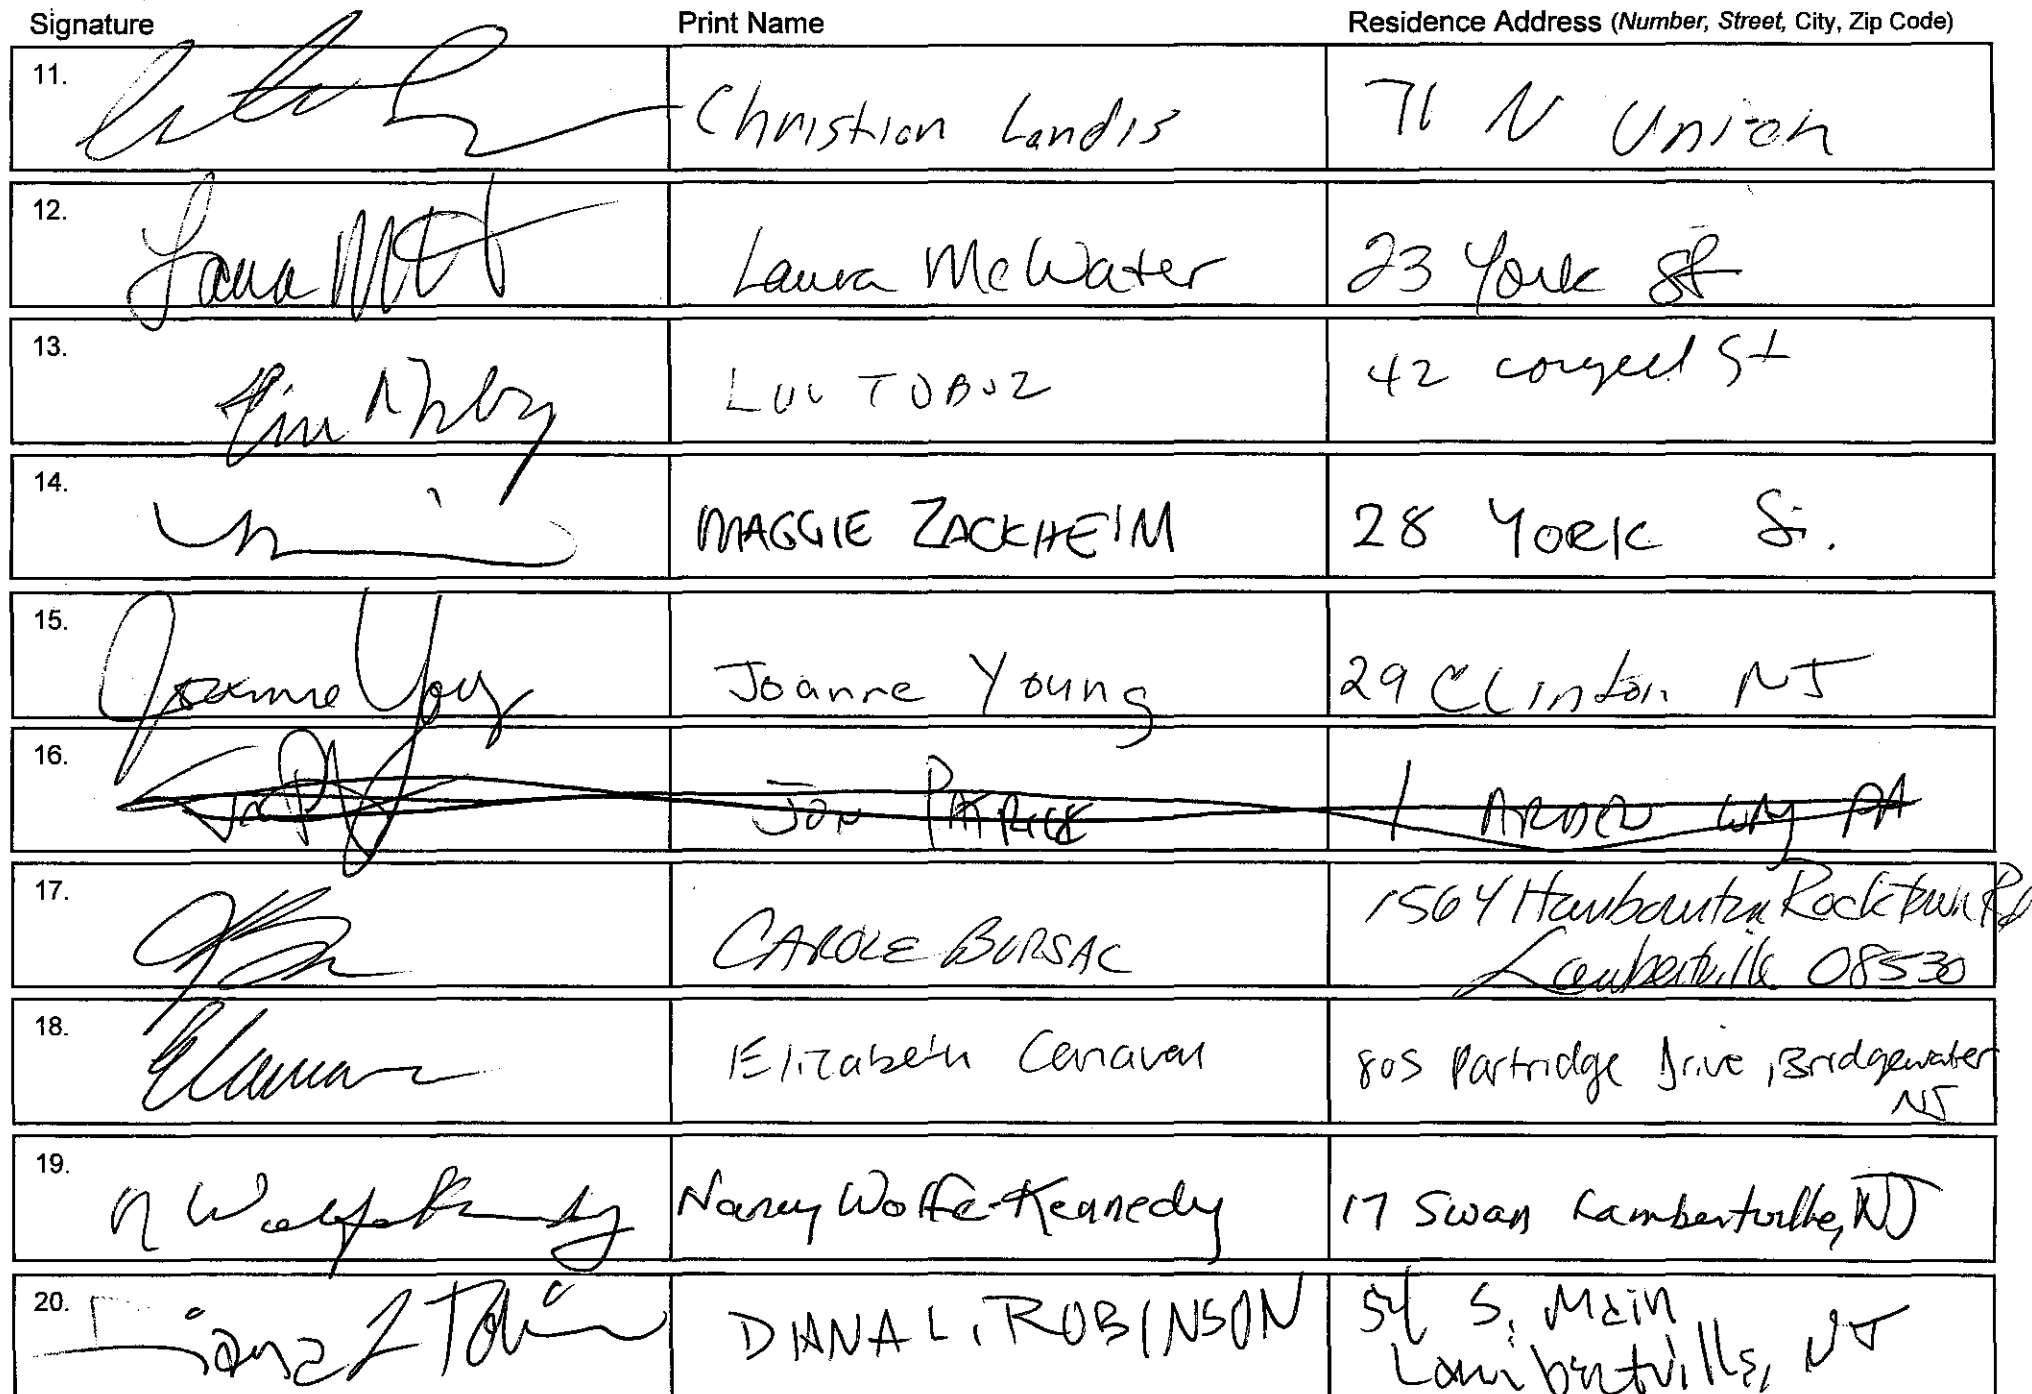 Signature Print Name Residence Address (Number, Street, City, Zip Code)
11. Christian Landis 71 N Union
12. Laura McWater 23 York St
13. 42 St
14. MAGGIE ZACKHEIM 28 YORK St.
15. Joanne Young Joanne Young 29 Clinton NJ
16. JON PATRICK 1 ARDEN WY PA
17. CAROLE BURSAC 1564 Rocktown Rd
Lambertville 08530
18. Elizabeth Canavan 805 Partridge Drive, Bridgewater
NJ
19. Nancy Wolfe-Kennedy 17 Swan Lambertville, NJ
20. DIANA L. ROBINSON 54 S. Main
Lambertville, NJ